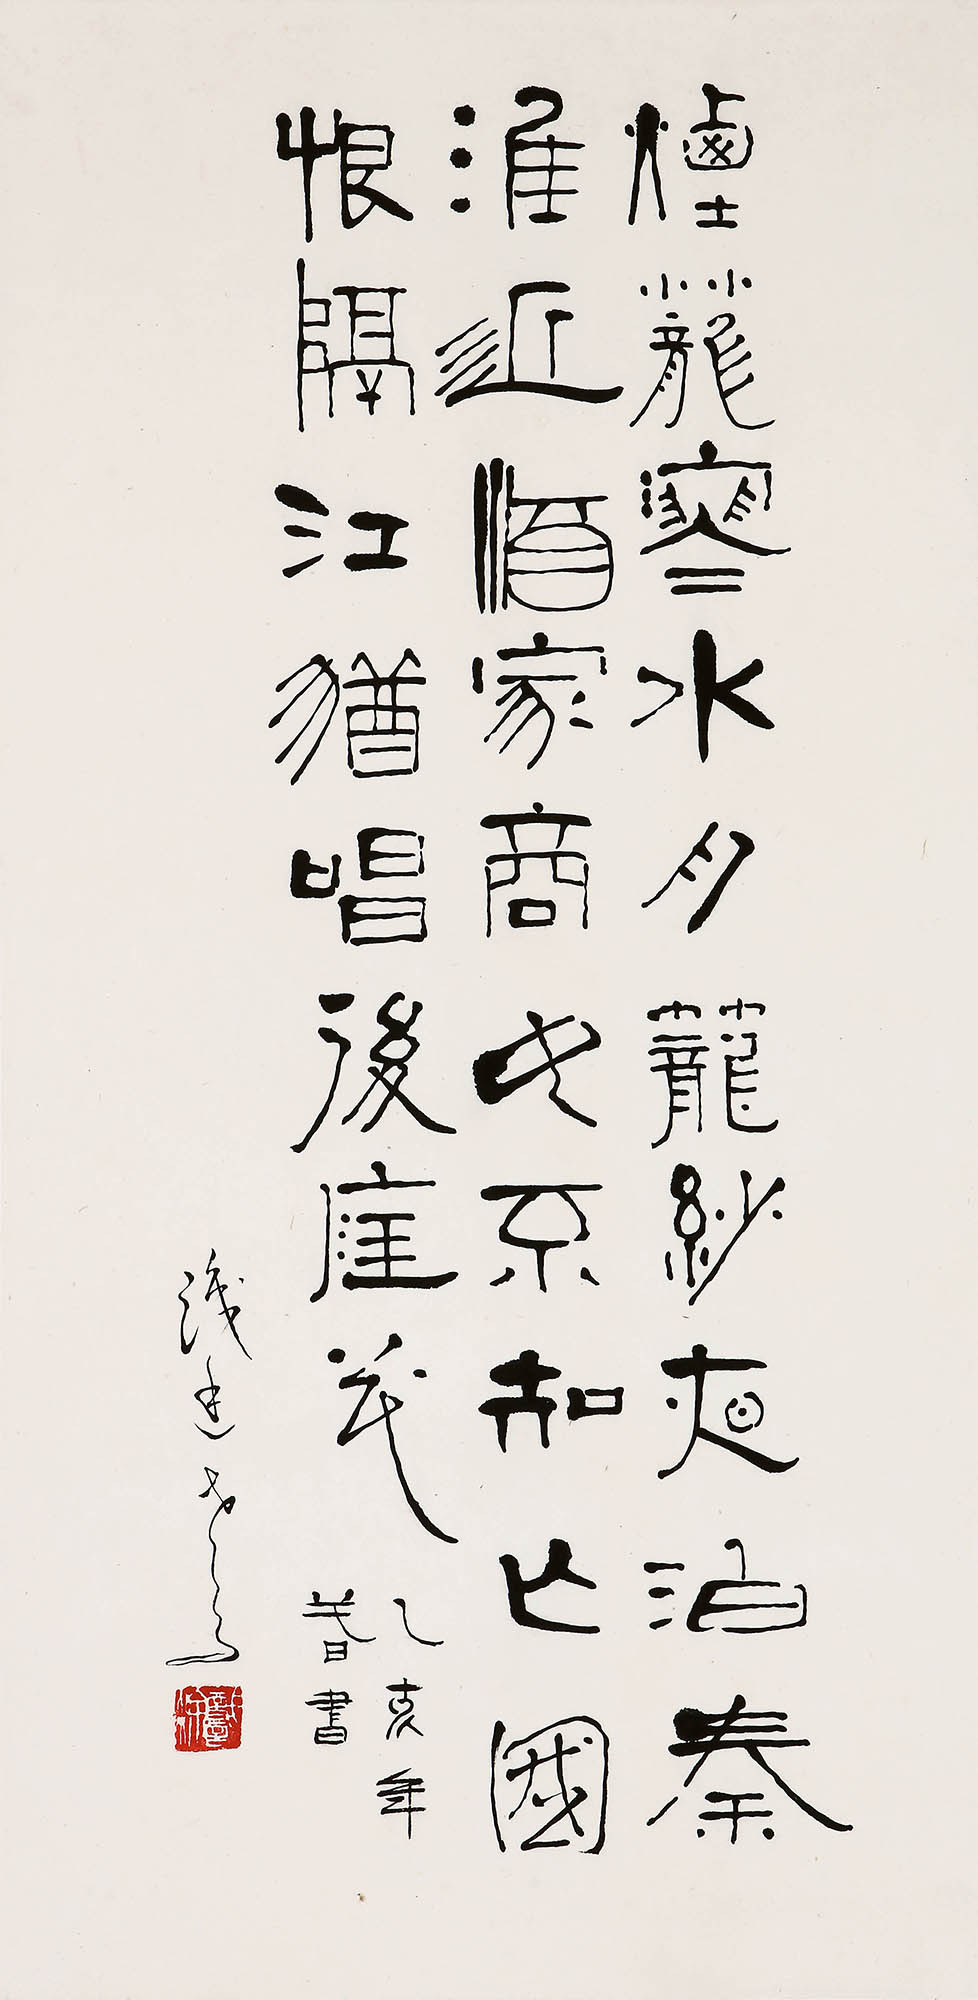 煙蘢寒水月蘢紗夜泊秦
淮近酒家商女不知亡國
恨隔江猶唱後庭花
乙亥年
春書